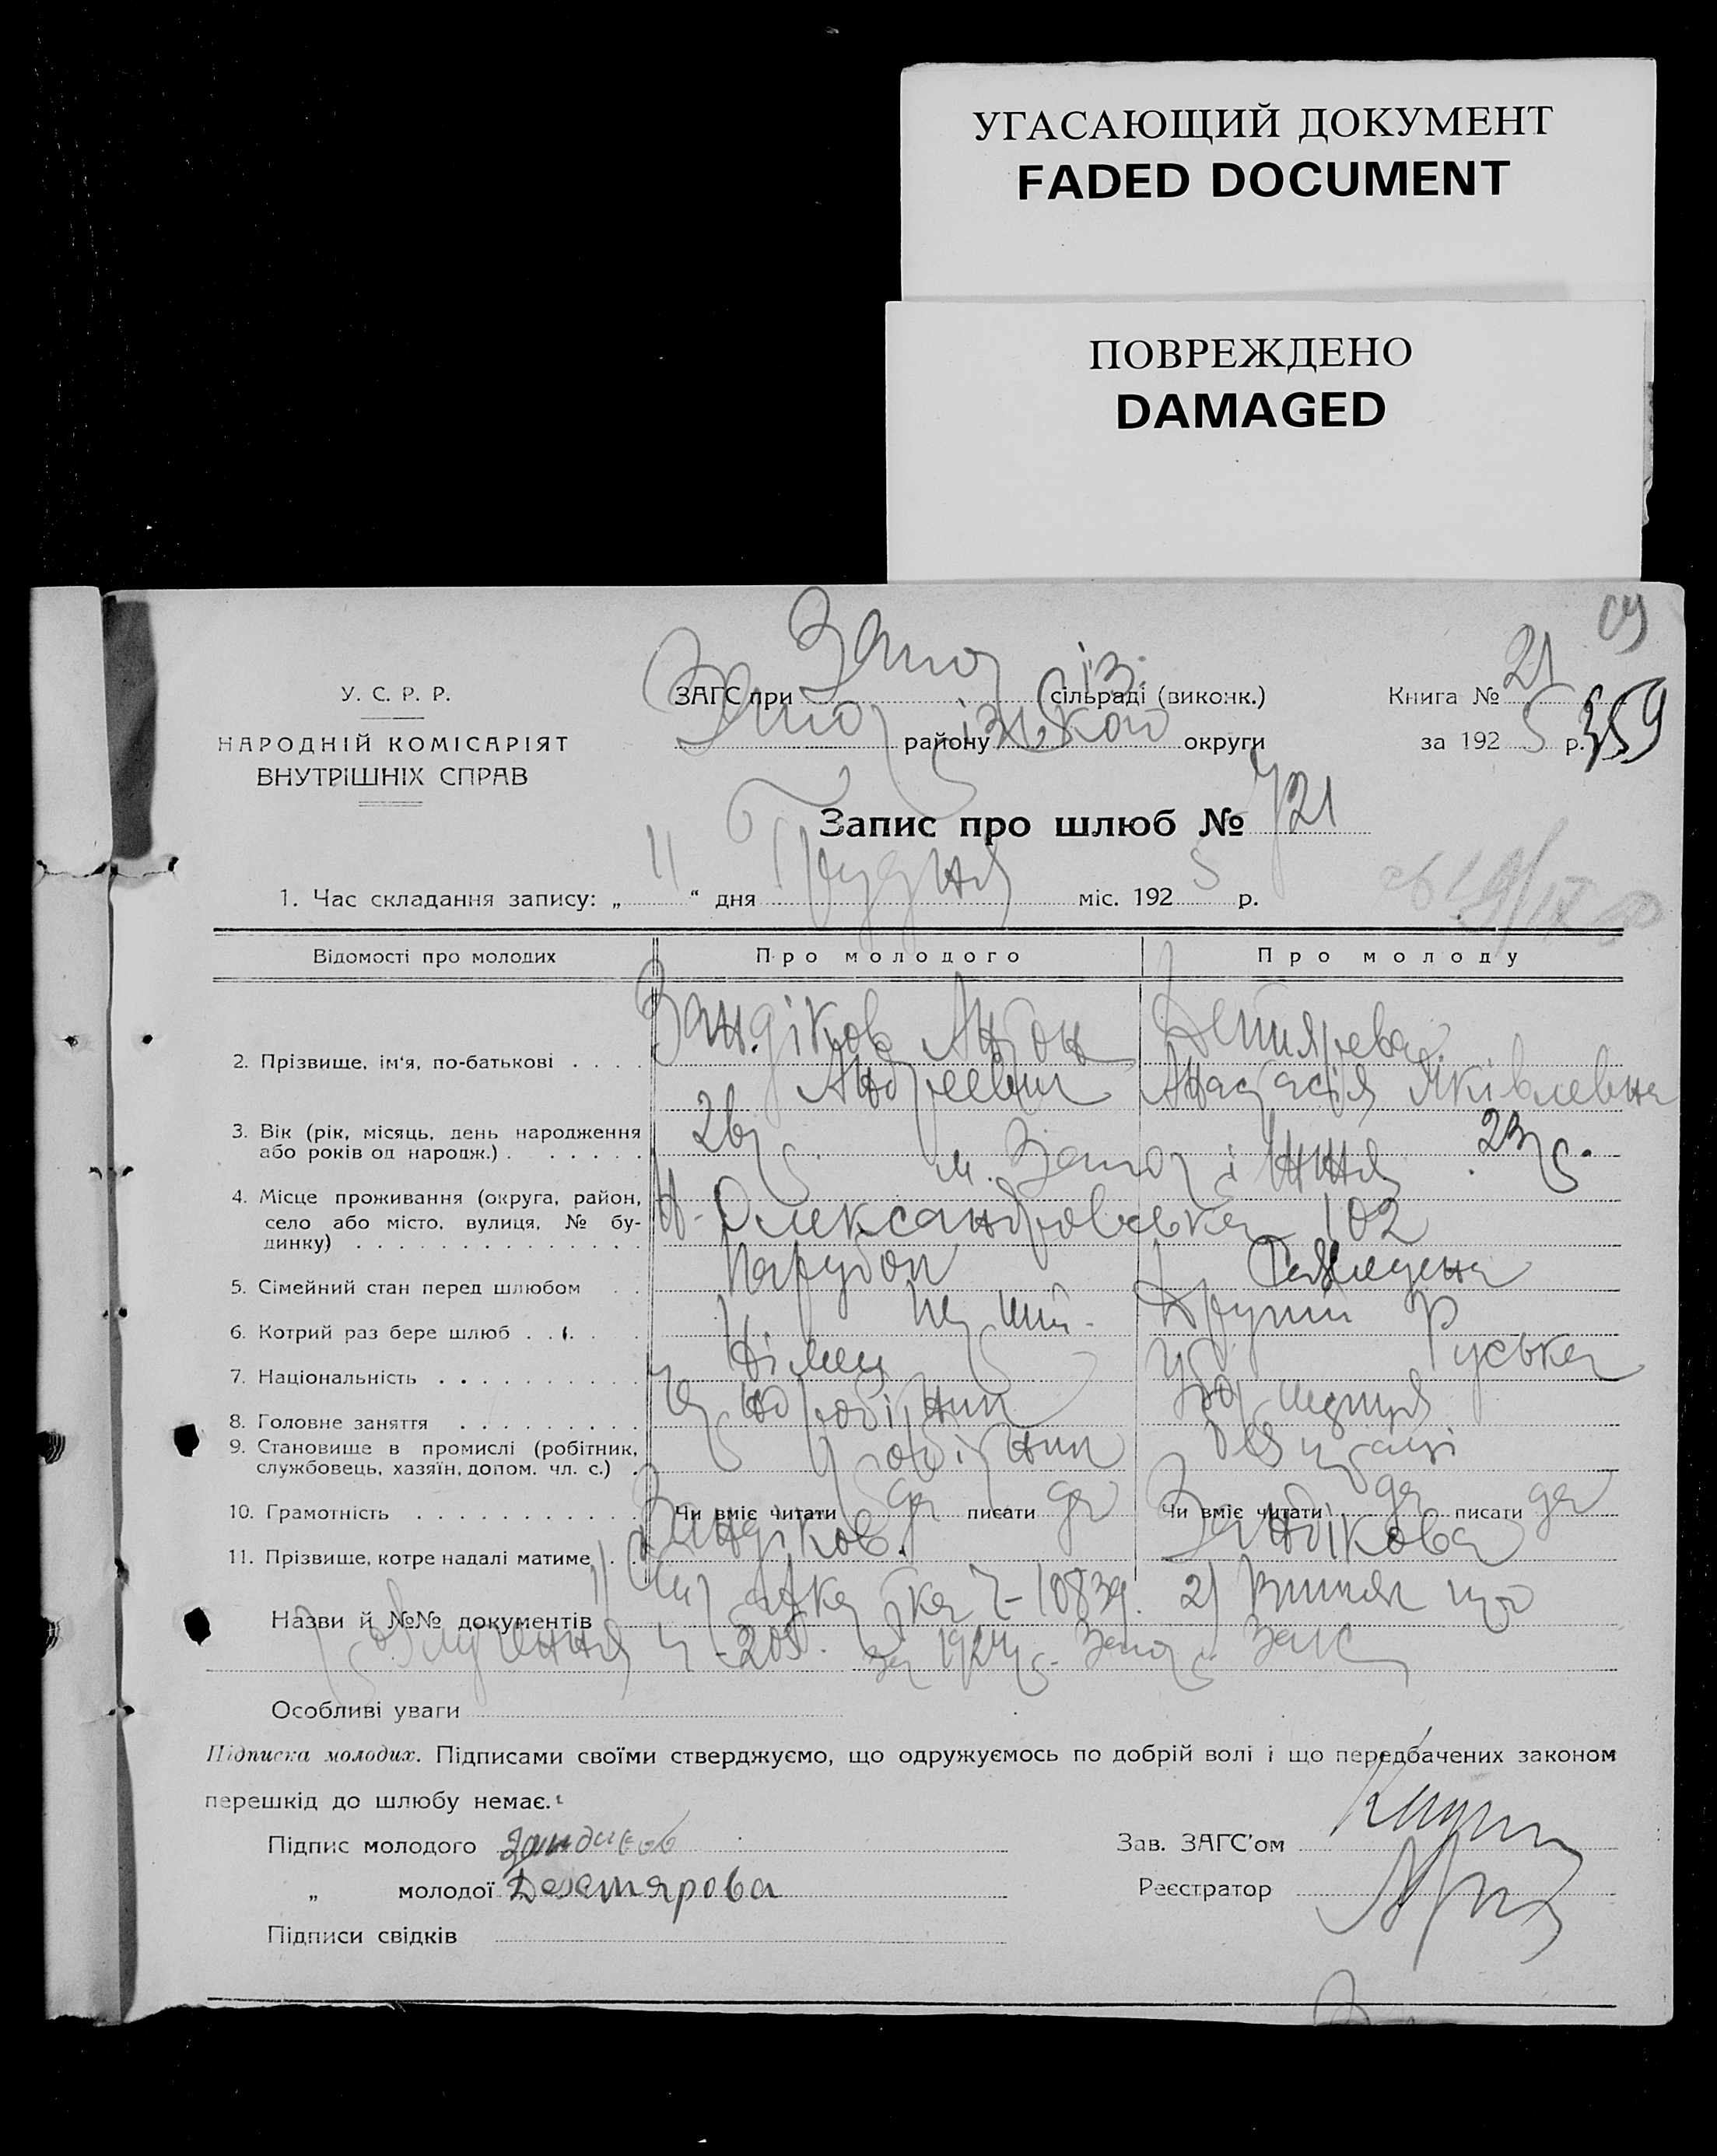 УГАСАЮЩИЙ ДОКУМЕНТ
FADED DOCUMENT
ПОВРЕЖДЕНО
DAMAGED
У. С. Р. Р.
НАРОДНІЙ КОМІСАРІЯТ
ВНУТРІШНІХ СПРАВ
ЗАГС при Запоріз. сільраді (виконк.)
Запорізького району округи
Книга № 21
за 1925 р. 359
Запис про шлюб № 721
1. Час складання запису: „11“ дня Грудня міс. 1925 р.
Відомості про молодих Про молодого Про молоду
2. Прізвище, ім'я, по-батькові Зандіков Антон Андреевич Дегтярева Анастасія Яківлевна
3. Вік (рік, місяць, день народження або років од народж.) 26 р. 23 р.
4. Місце проживання (округа, район, село або місто, вулиця, № будинку) м. Запоріжжя Олександровська 102
5. Сімейний стан перед шлюбом Парубок Розведена
6. Котрий раз бере шлюб Перший Другий
7. Національність Німец Руська
8. Головне заняття Чорноробітник
9. Становище в промислі (робітник, службовець, хазяїн, допом. чл. с.) робітник
10. Грамотність Чи вміє читати да писати да Чи вміє читати да писати да
11. Прізвище, котре надалі матиме Зандіков. Зандікова
Назви й №№ документів 2)
205 за 1924 р. Запор. Загс
Особливі уваги
Підписка молодих. Підписами своїми стверджуємо, що одружуємось по добрій волі і що передбачених законом
перешкід до шлюбу немає.
Підпис молодого Зандиков
„ молодої Дехтярова
Підписи свідків
Зав. ЗАГС'ом
Реєстратор